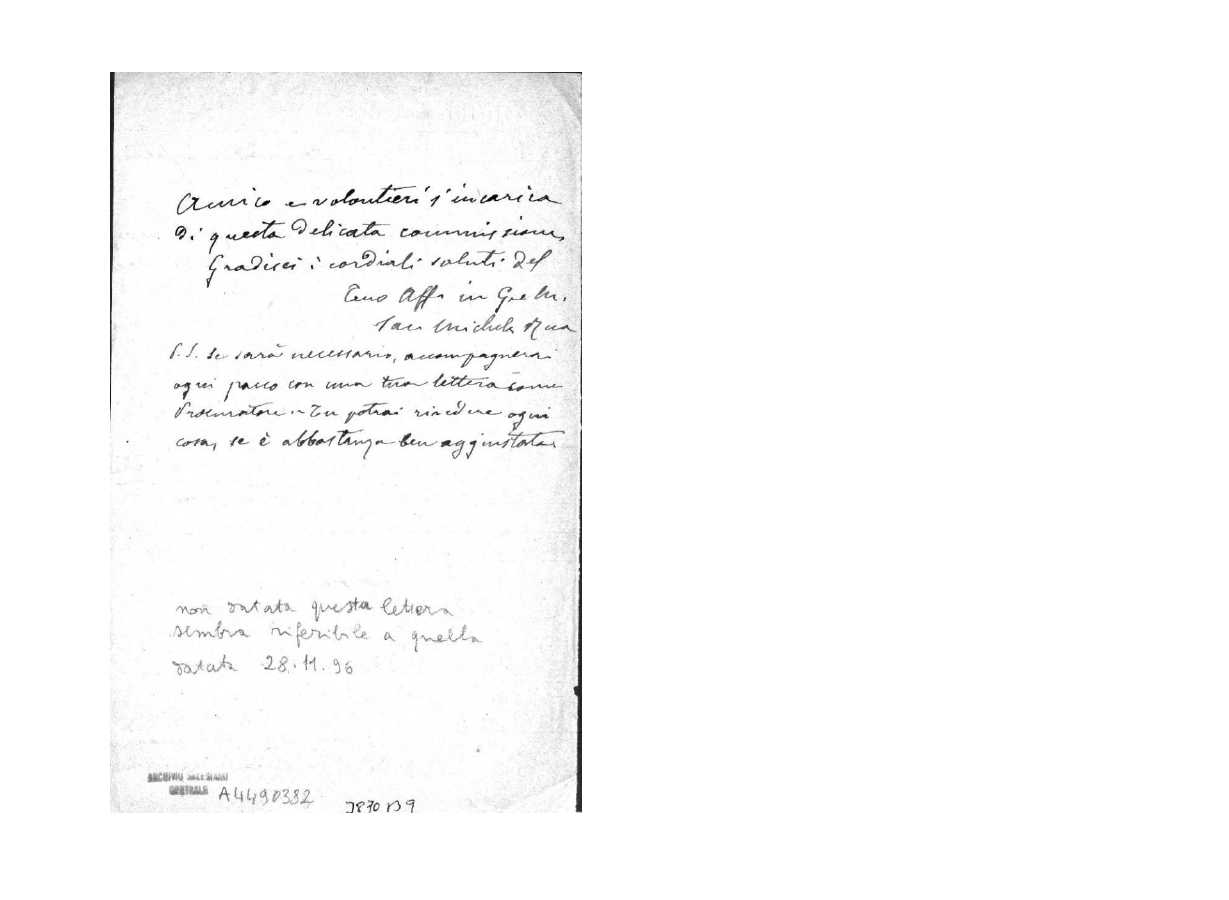 Amico e volontieri s'incarica
di questa delicata commissione,
Gradisci i cordiali saluti del
Tuo Aff. in G. e M.
Sac Michele Rua
P.S. Se sarà necessario, accompagnerai
ogni passo con una tua lettera come
Procuratore - Tu potrai rivedere ogni
cosa, se è abbastanza ben aggiustata.
non datata questa lettera
sembra riferibile a quella
datata 28.11.96
ARCHIVIO SALESIANO
CENTRALE A4490382
3870 B 9